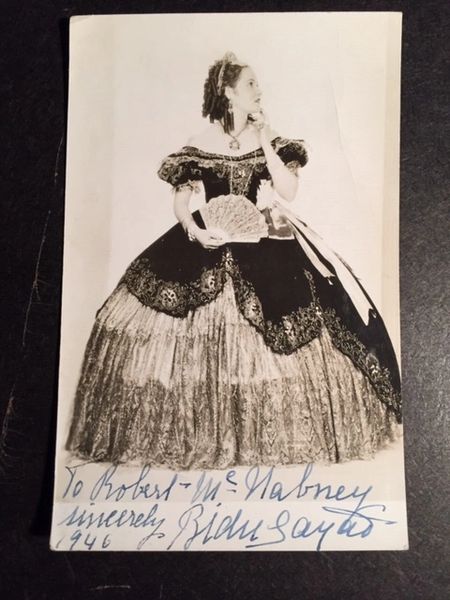 To Robert Mc Nabney
sincerely Bidu Sayão
1946